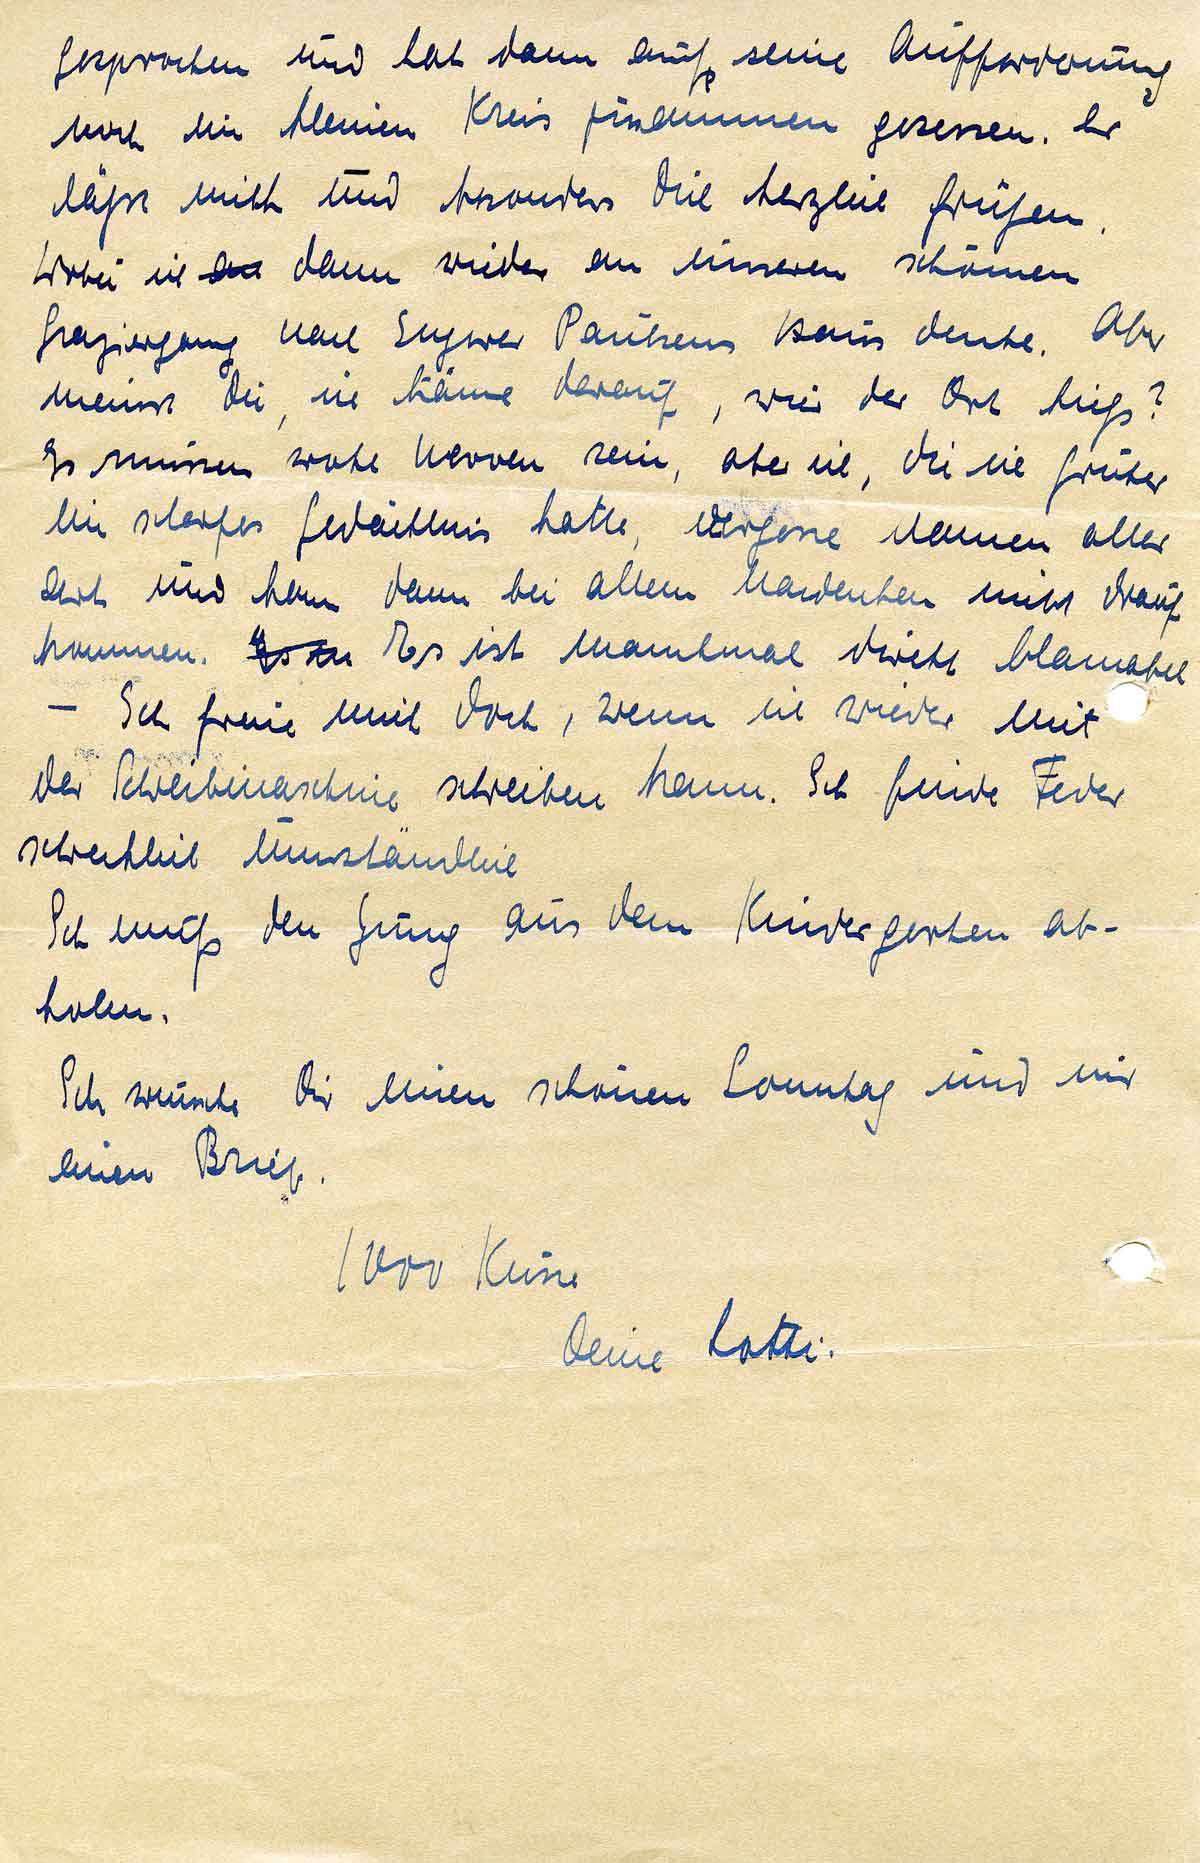 gesprochen und hat dann auf seine Aufforderung
noch im kleinen Kreis zusammen gesessen. Er
läßt mich und besonders Dich herzlich grüßen.
Wobei ich an dann wieder an unseren schönen
Spaziergang nach Haus denke. Aber
meinst Du, ich käme darauf, wie der Ort hieß?
Es müssen wohl Nerven sein, aber ich, die ich früher
ein scharfes Gedächtnis hatte, vergesse Namen aller
Art und kann dann bei allem Nachdenken nicht drauf
kommen. Es ist manchmal direkt blamabel
– Ich freue mich doch, wenn ich wieder mit
der Schreibmaschine schreiben kann. Ich finde Feder
schrecklich umständlich
Ich muß den Jung aus dem Kindergarten ab-
holen.
Ich wünsche Dir einen schönen Sonntag und mir
einen Brief.
1000 Küsse
Deine Lotti.